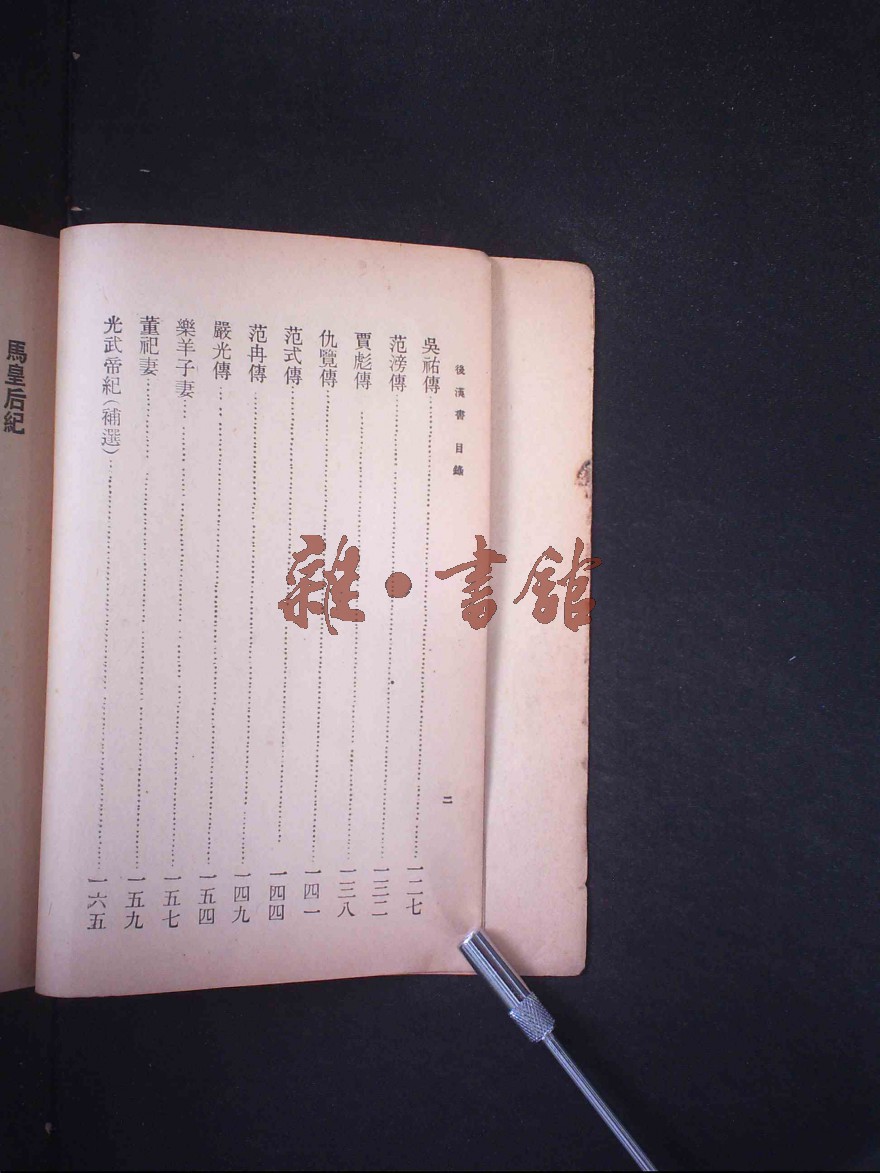 後漢書 目錄
二
吳祐傳……一二七
范滂傳……一三二
賈彪傳……一三八
仇覽傳……一四一
范式傳……一四四
范冉傳……一四九
嚴光傳……一五四
樂羊子妻……一五七
董祀妻……一五九
光武帝紀(補選)……一六五
馬皇后紀
雜·書館